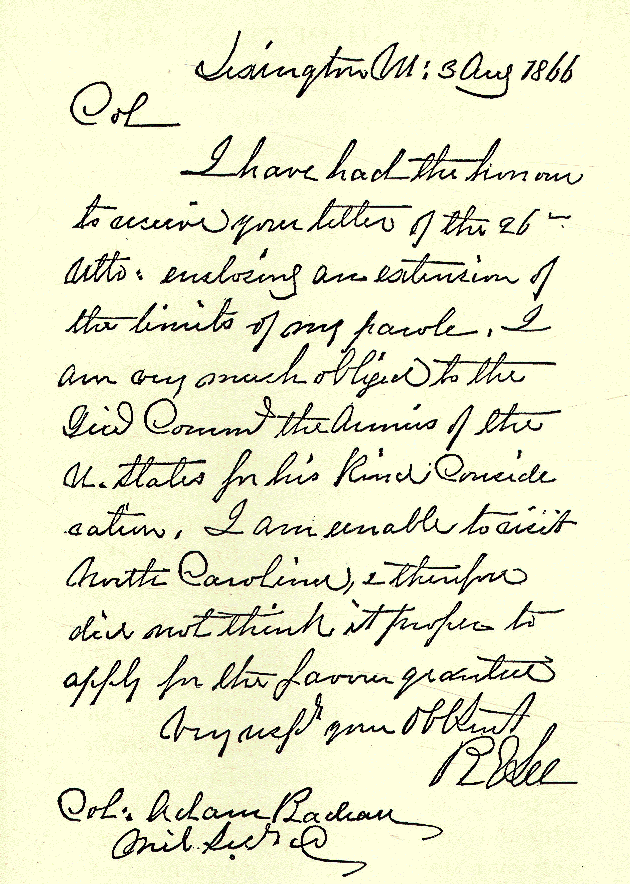 Lexington Va: 3 Aug 1866
Col
I have had the honour
to receive your letter of the 26th
Ulto: enclosing an extension of
the limits of my parole. I
am very much obliged to the
Genl Commd the Armies of the
U. States for his kind conside
ration. I am unable to visit
North Carolina, & therefore
did not think it proper to
apply for the favour granted
Very respy your Obt Servt
R E Lee
Col: Adam Badeau
Mil. Secy &c